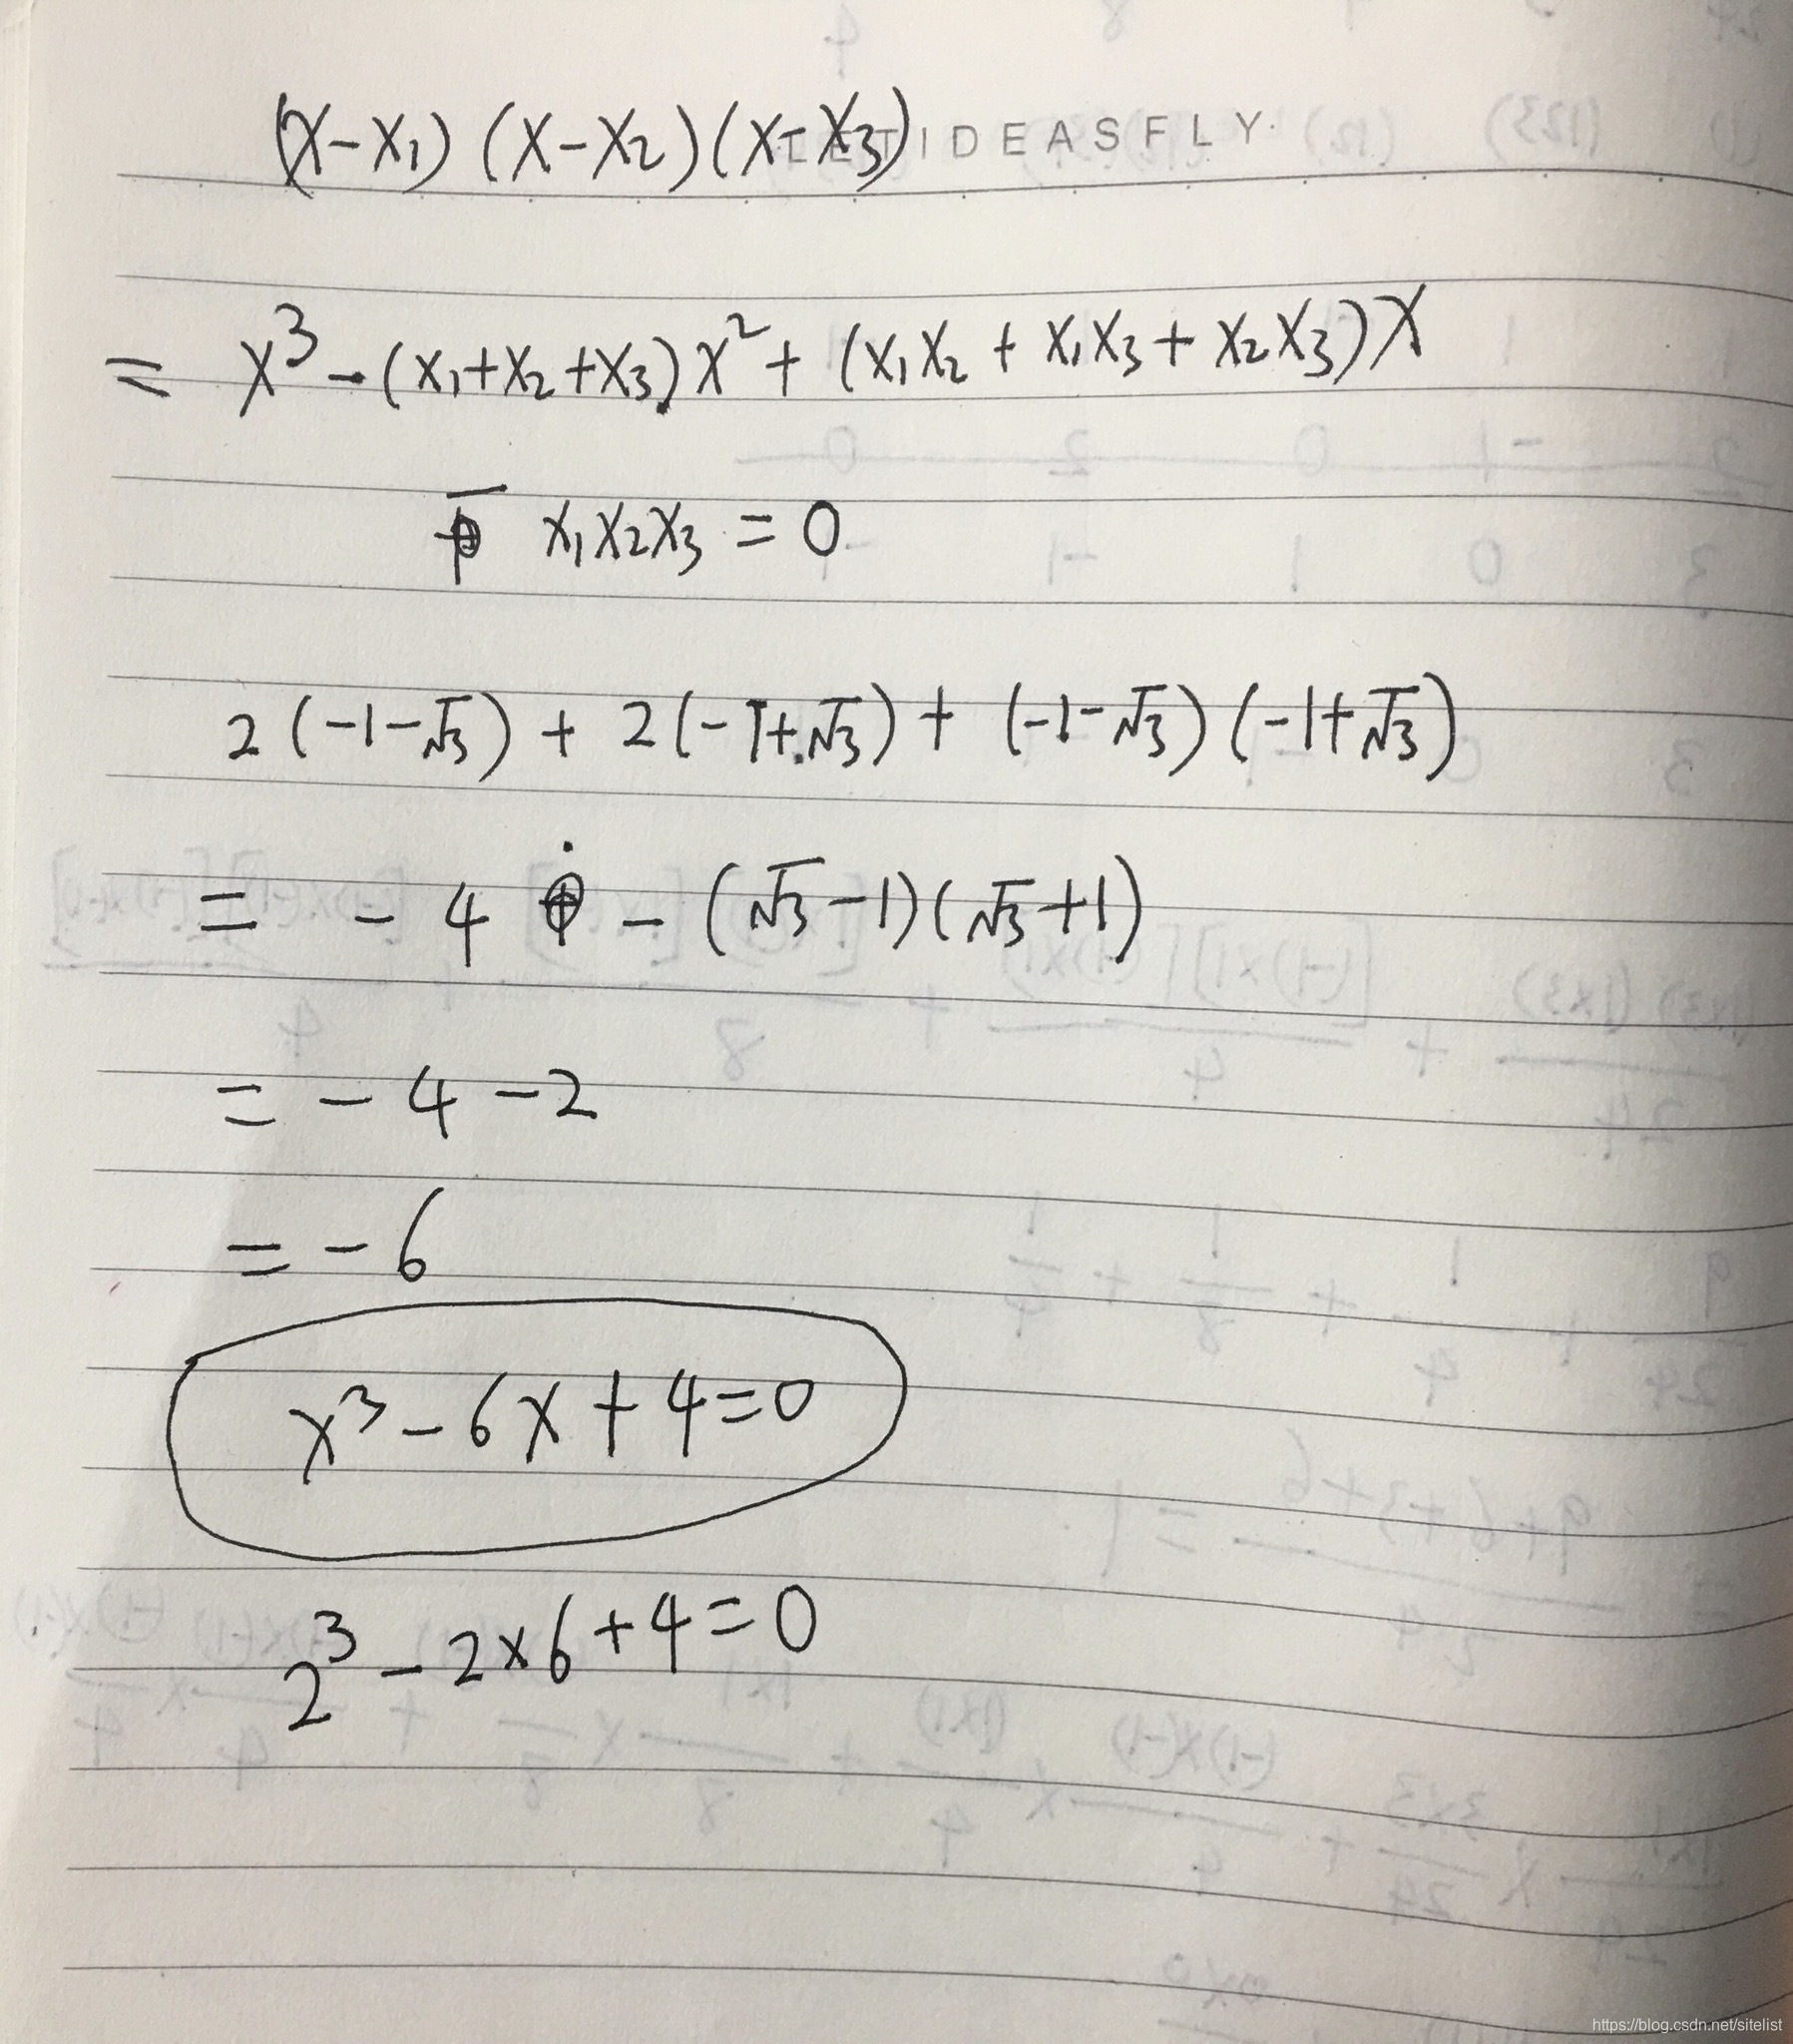 (x-x₁)(x-x₂)(x-x₃)
LET IDEAS FLY
= x³-(x₁+x₂+x₃)x²+(x₁x₂+x₁x₃+x₂x₃)x
- x₁x₂x₃=0
2(-1-√3)+2(-1+√3)+(-1-√3)(-1+√3)
= -4 -(√3-1)(√3+1)
= -4-2
= -6
x³-6x+4=0
2³-2×6+4=0
https://blog.csdn.net/sitelist